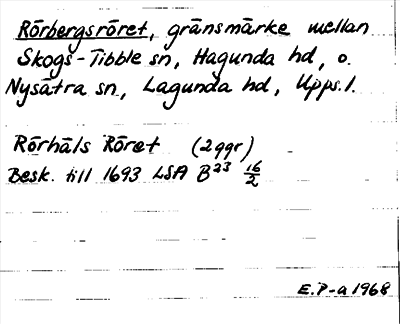 Rörbergsröret, gränsmärke mellan
Skogs-Tibble sn, Hagunda hd, o.
Nysätra sn, Lagunda hd, Upps.l.
Rörhåls Röret (2 ggr)
Besk. till 1693 LSA B23 16/2
E.P-a 1968